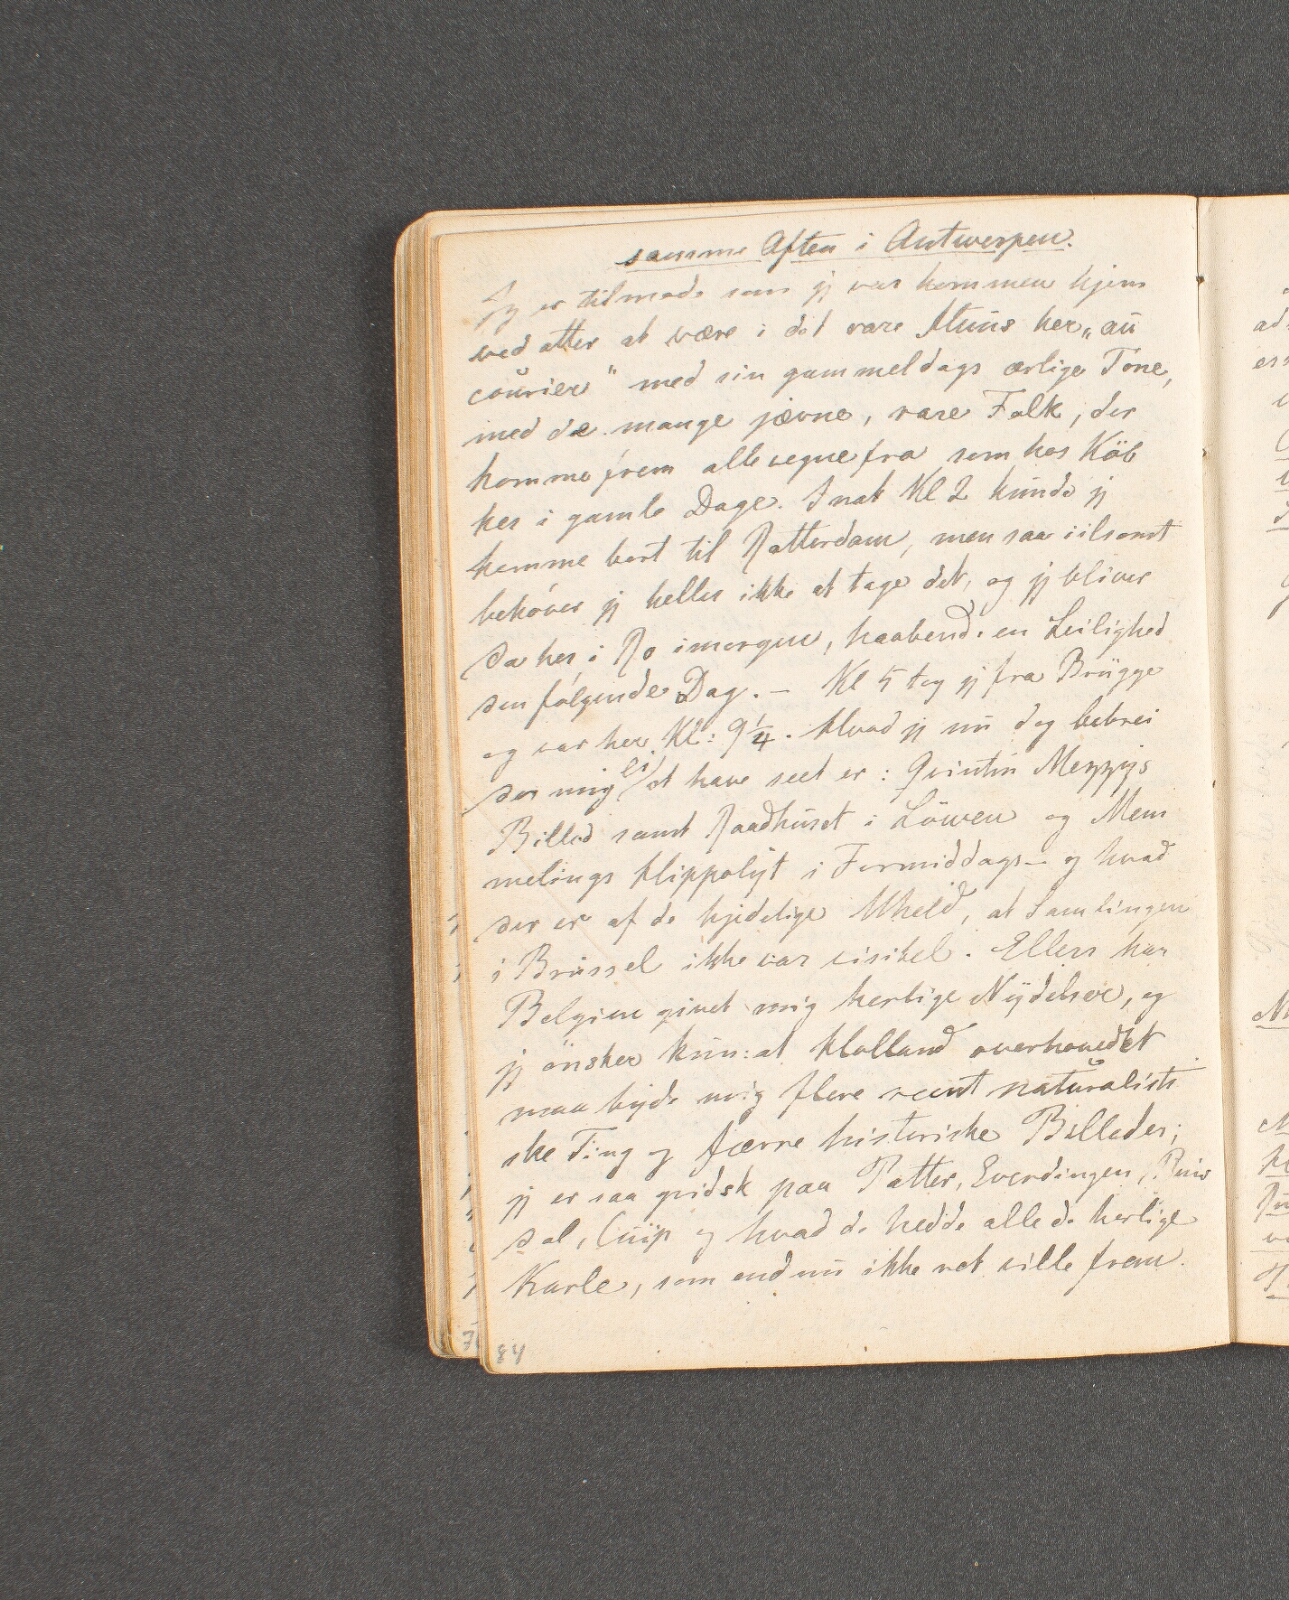 samme Aften i Antwerpen.
Jeg er tilmode som jeg var kommen hjem
ved atter at være i det rare Huus her „au
courier" med sin gammeldags ærlige Tone,
med de mange jævne, rare Folk, der
komme frem alle vegne fra som hos Köb
kes i gamle Dage. Inat Kl 2 kunde jeg
komme bort til Rotterdam, men saa iilsomt
behøver jeg heller ikke at tage det, og jeg bliver
da her i Ro imorgen, haabende en Leilighed
den følgende Dag. – Kl 5 tog jeg fra Brügge
og var her Kl: 9 1/4. Hvad jeg nu dog bebrei
der mig ei at have seet er: Qvintin Mezzys
Billed samt Raadhuset i Löwen og Mem
melings Hippolyt i Formiddags – og hvad
der er af de kjedelige Uheld, at Samlingen
i Brüssel ikke var visibel. Ellers har
Belgien givet mig herlige Nydelser, og
jeg ønsker kun: at Holland overhovedet
maa byde mig flere reent naturalisti
ske Ting og færre historiske Billeder;
jeg er saa gridsk paa Potter, Everdingen, Ruis
dal, Cuip og hvad de hedde alle de herlige
Karle, som endnu ikke ret ville frem.
84